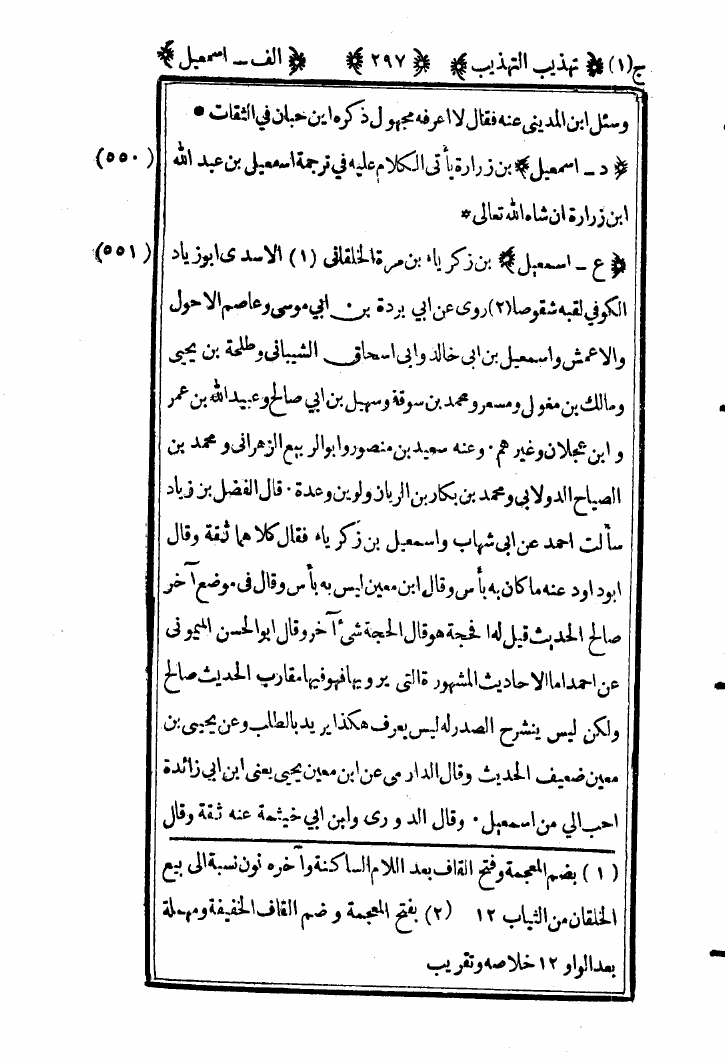 ج(١) ﴿ تهذيب التهذيب ﴾ ﴿ ٢٩٧ ﴾ ﴿ الف ـ اسمعيل ﴾
وسئل ابن المدينى عنه فقال لا اعرفه مجهول ذكره ابن حبان في الثقات •
﴿ د ـ اسمعيل ﴾ بن زرارة يأتى الكلام عليه في ترجمة اسمعيل بن عبد الله (٥٥٠)
ابن زرارة ان شاء الله تعالى *
﴿ ع ـ اسمعيل ﴾ بن زكرياء بن مرة الخلقانى (١) الاسدى ابو زياد (٥٥١)
الكوفي لقبه شقوصا (٢) روى عن ابي بردة بن ابي موسى وعاصم الاحول
والاعمش واسمعيل بن ابى خالد وابى اسحاق الشيبانى وطلحة بن يحيى
ومالك بن مغول ومسعر ومحمد بن سوقة وسهيل بن ابي صالح وعبيد الله بن عمر
و ابن عجلان وغيرهم · وعنه سعيد بن منصور وابو الربيع الزهرانى و محمد بن
الصباح الدولابي ومحمد بن بكار بن الريان ولوين وعدة · قال الفضل بن زياد
سألت احمد عن ابى شهاب واسمعيل بن زكرياء فقال كلاهما ثقة وقال
ابو داود عنه ما كان به بأس وقال ابن معين ليس به بأس وقال فى موضع آخر
صالح الحديث قيل له افحجة هو قال الحجة شئ آخر وقال ابو الحسن الميمونى
عن احمد اما الاحاديث المشهورة التى يرويها فهو فيها مقارب الحديث صالح
ولكن ليس ينشرح الصدر له ليس يعرف هكذا يريد بالطلب وعن يحيى بن
معين ضعيف الحديث وقال الدارمى عن ابن معين يحيى يعنى ابن ابي زائدة
احب الي من اسمعيل · وقال الدورى وابن ابي خيثمة عنه ثقة وقال
(١) بضم المعجمة وفتح القاف بعد اللام الساكنة وآخره نون نسبة الى بيع
الخلقان من الثياب ١٢ (٢) بفتح المعجمة و ضم القاف الخفيفة ومهملة
بعد الواو ١٢ خلاصه وتقريب